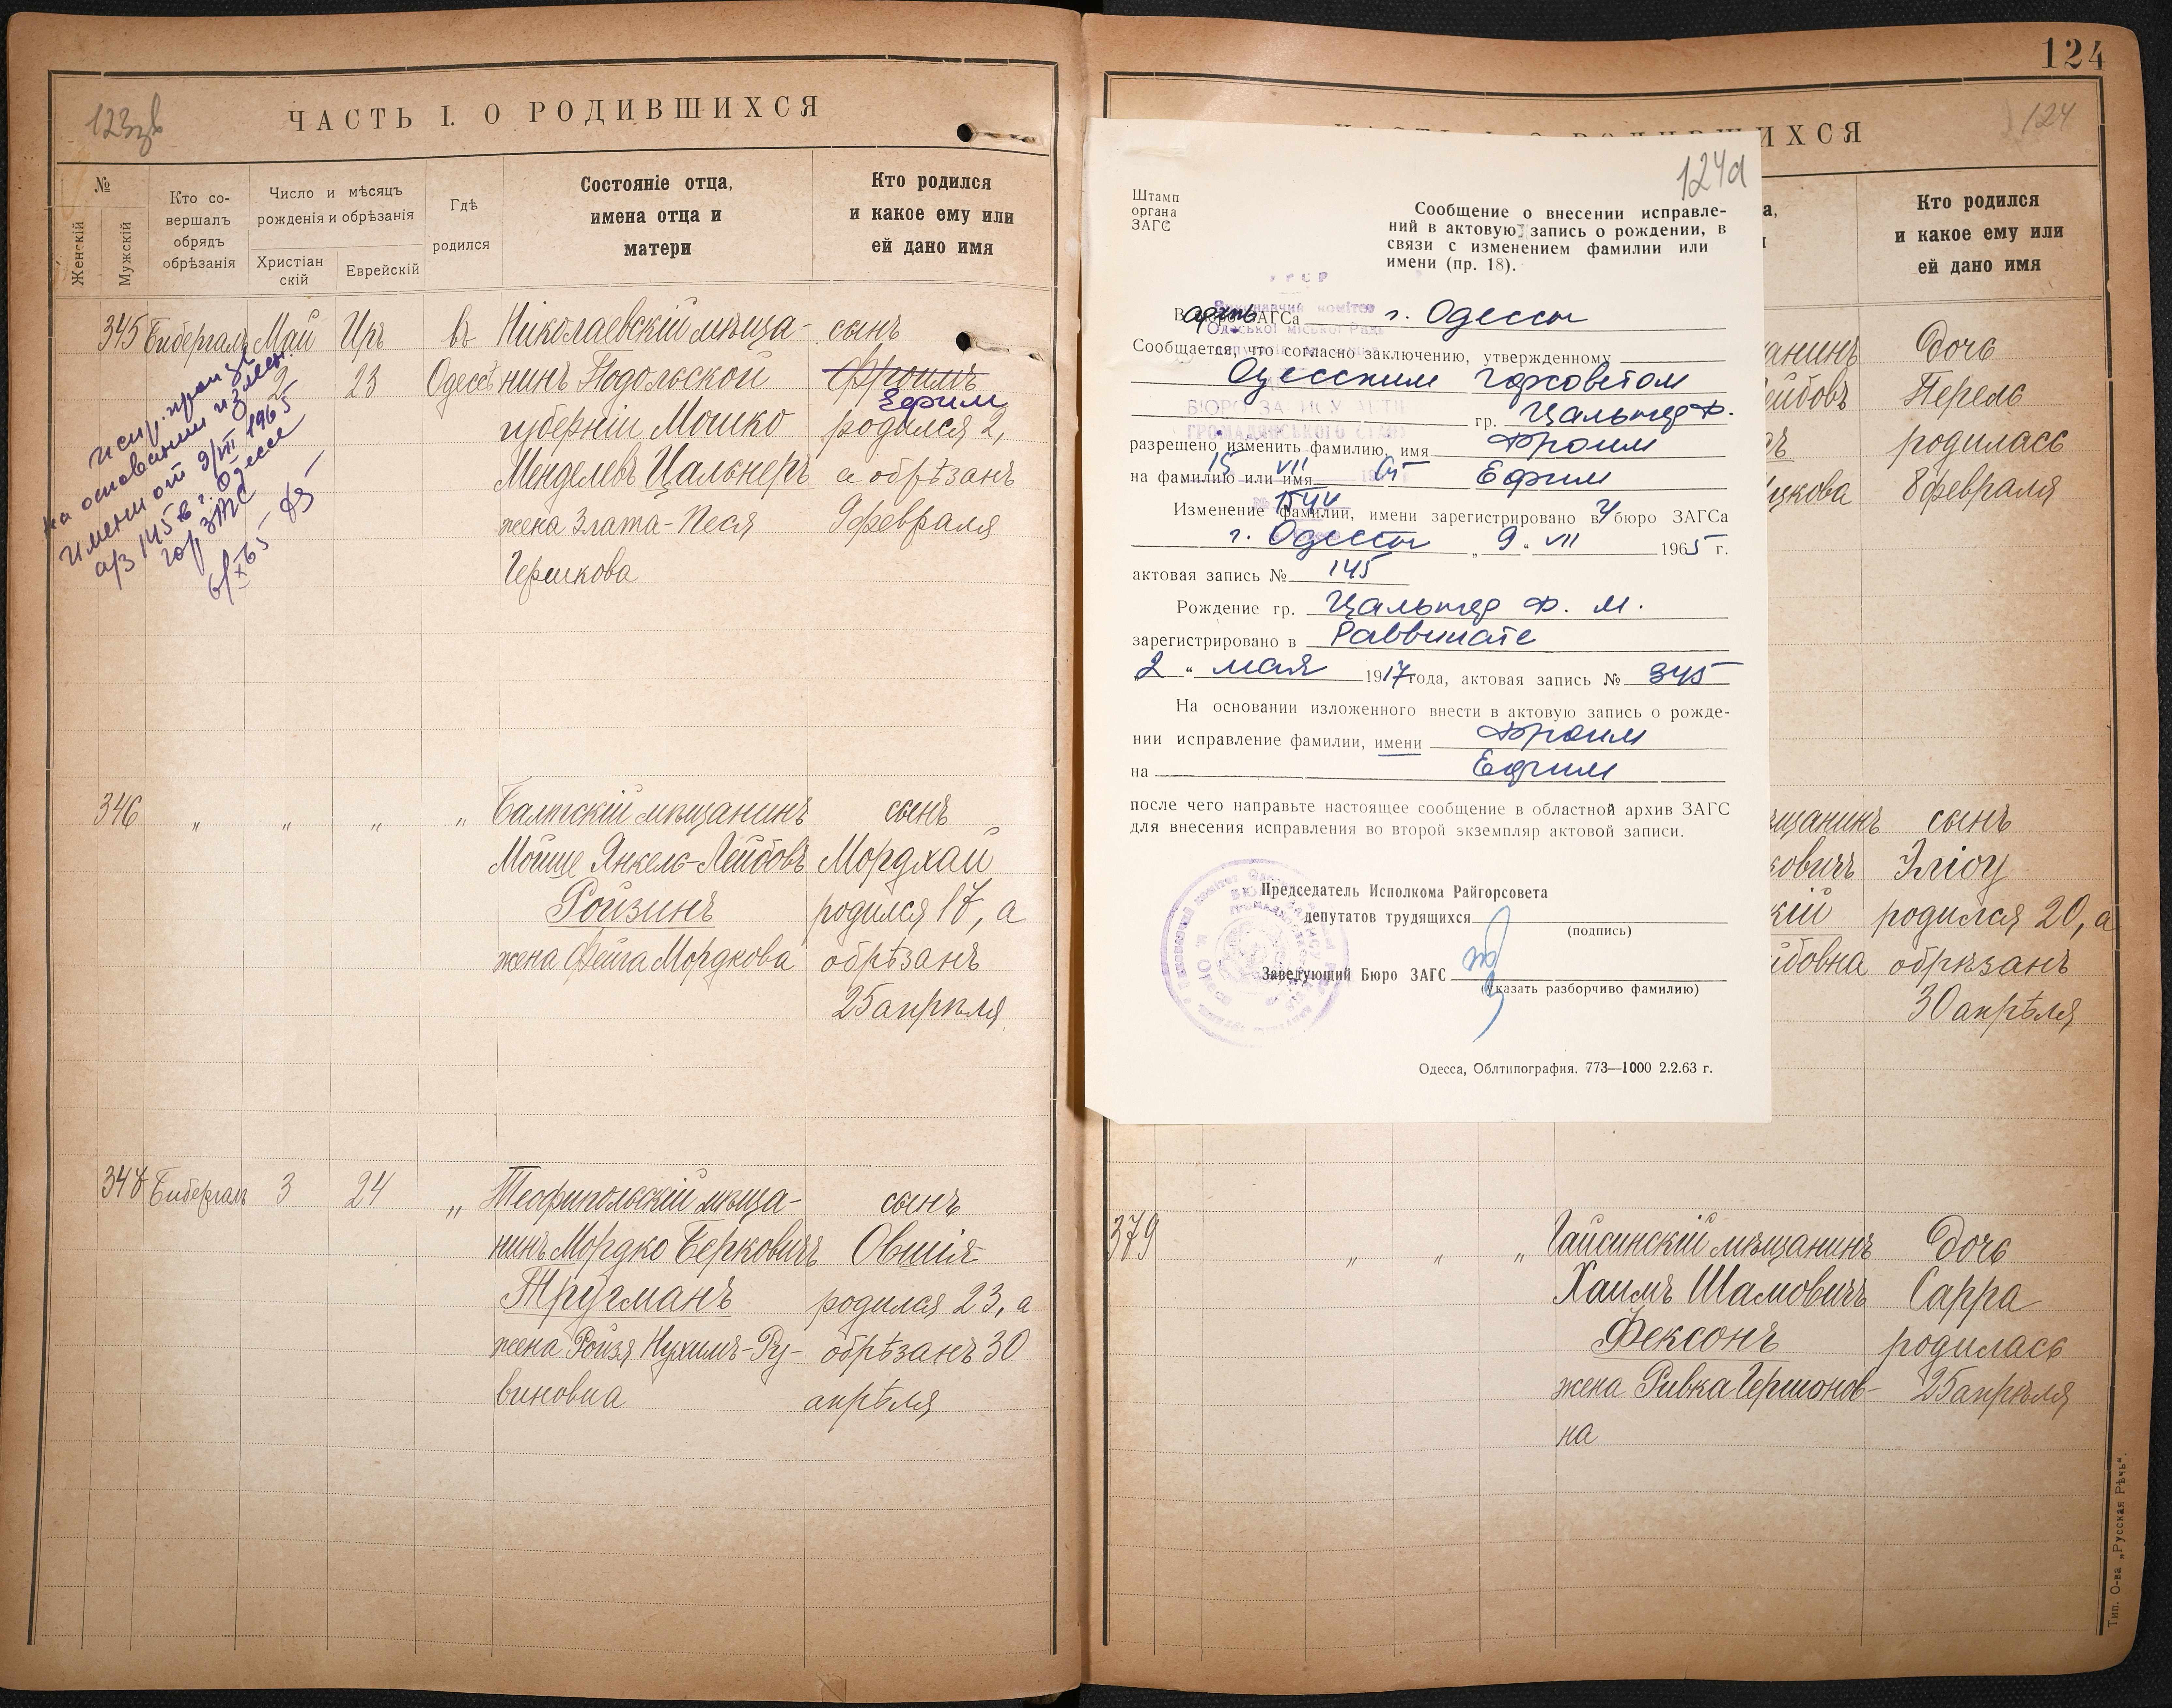 123зв
ЧАСТЬ I. О РОДИВШИХСЯ
№
Женскій
Мужскій
Кто со-
вершалъ
обрядъ
обрѣзанія
Число и мѣсяцъ
рожденія и обрѣзанія
Христіан
скій
Еврейскій
Гдѣ
родился
Состояніе отца,
имена отца и
матери
Кто родился
и какое ему или
ей дано имя
345 Бибергаль Май Иръ въ Николаевскій мѣща- сынъ
2 23 Одессѣ нинъ Подольской Фроимъ
Ефим
губерніи Мошко родился 2,
Менделевъ Цальнеръ а обрѣзанъ
жена Злата-Песя 9 февраля
Гершкова
испр. произв.
на основании измен.
имени от 9/VII 1965
а/з 145 в г. Одессе
гор ЗАГС
6/X 65
346 „ „ „ „ Балтскій мѣщанинъ сынъ
Мойше Янкель-Лейбовъ Мордхай
Ройзинъ родился 17, а
жена Фейга Мордкова обрѣзанъ
25 апрѣля
347 Бибергаль 3 24 „ Теофипольскій мѣща- сынъ
нинъ Мордко Берковичъ Овшія
Тругманъ родился 23, а
жена Ройзя Нухимъ-Ру- обрѣзанъ 30
виновна апрѣля
124
124
ИХСЯ
а,
Кто родился
и какое ему или
ей дано имя
анинъ Дочь
ейбовъ Перель
родилась
цкова 8 февраля
щанинъ сынъ
ковичъ Эліоу
кій родился 20, а
йбовна обрѣзанъ
30 апрѣля
379 „ „ „ Гайсинскій мѣщанинъ Дочь
Хаимъ Шамовичъ Сарра
Фексонъ родилась
жена Ривка Гершонов- 25 апрѣля
на
Тип. О-ва „Русская Рѣчь“.
124а
Штамп
органа
ЗАГС
Сообщение о внесении исправле-
ний в актовую запись о рождении, в
связи с изменением фамилии или
имени (пр. 18).
УРСР
Виконавчий комітет
Одеської міської Ради
В архив ЗАГСа г. Одессы
Сообщается, что согласно заключению, утвержденному
Одесским Горсоветом
БЮРО ЗАПИСУ АКТІВ
гр. Цальнер Ф.
ГРОМАДЯНСЬКОГО СТАНУ
разрешено изменить фамилию, имя Фроим
15 VII 65
на фамилию или имя Ефим
1544
Изменение фамилии, имени зарегистрировано в У бюро ЗАГСа
г. Одессы „9“ VII 1965 г.
актовая запись № 145
Рождение гр. Цальнер Ф. М.
зарегистрировано в Раввинате
„2“ мая 1917 года, актовая запись № 345
На основании изложенного внести в актовую запись о рожде-
нии исправление фамилии, имени Фроим
на Ефим
после чего направьте настоящее сообщение в областной архив ЗАГС
для внесения исправления во второй экземпляр актовой записи.
Председатель Исполкома Райгорсовета
депутатов трудящихся
(подпись)
Заведующий Бюро ЗАГС
(указать разборчиво фамилию)
Одесса, Облтипография. 773—1000 2.2.63 г.